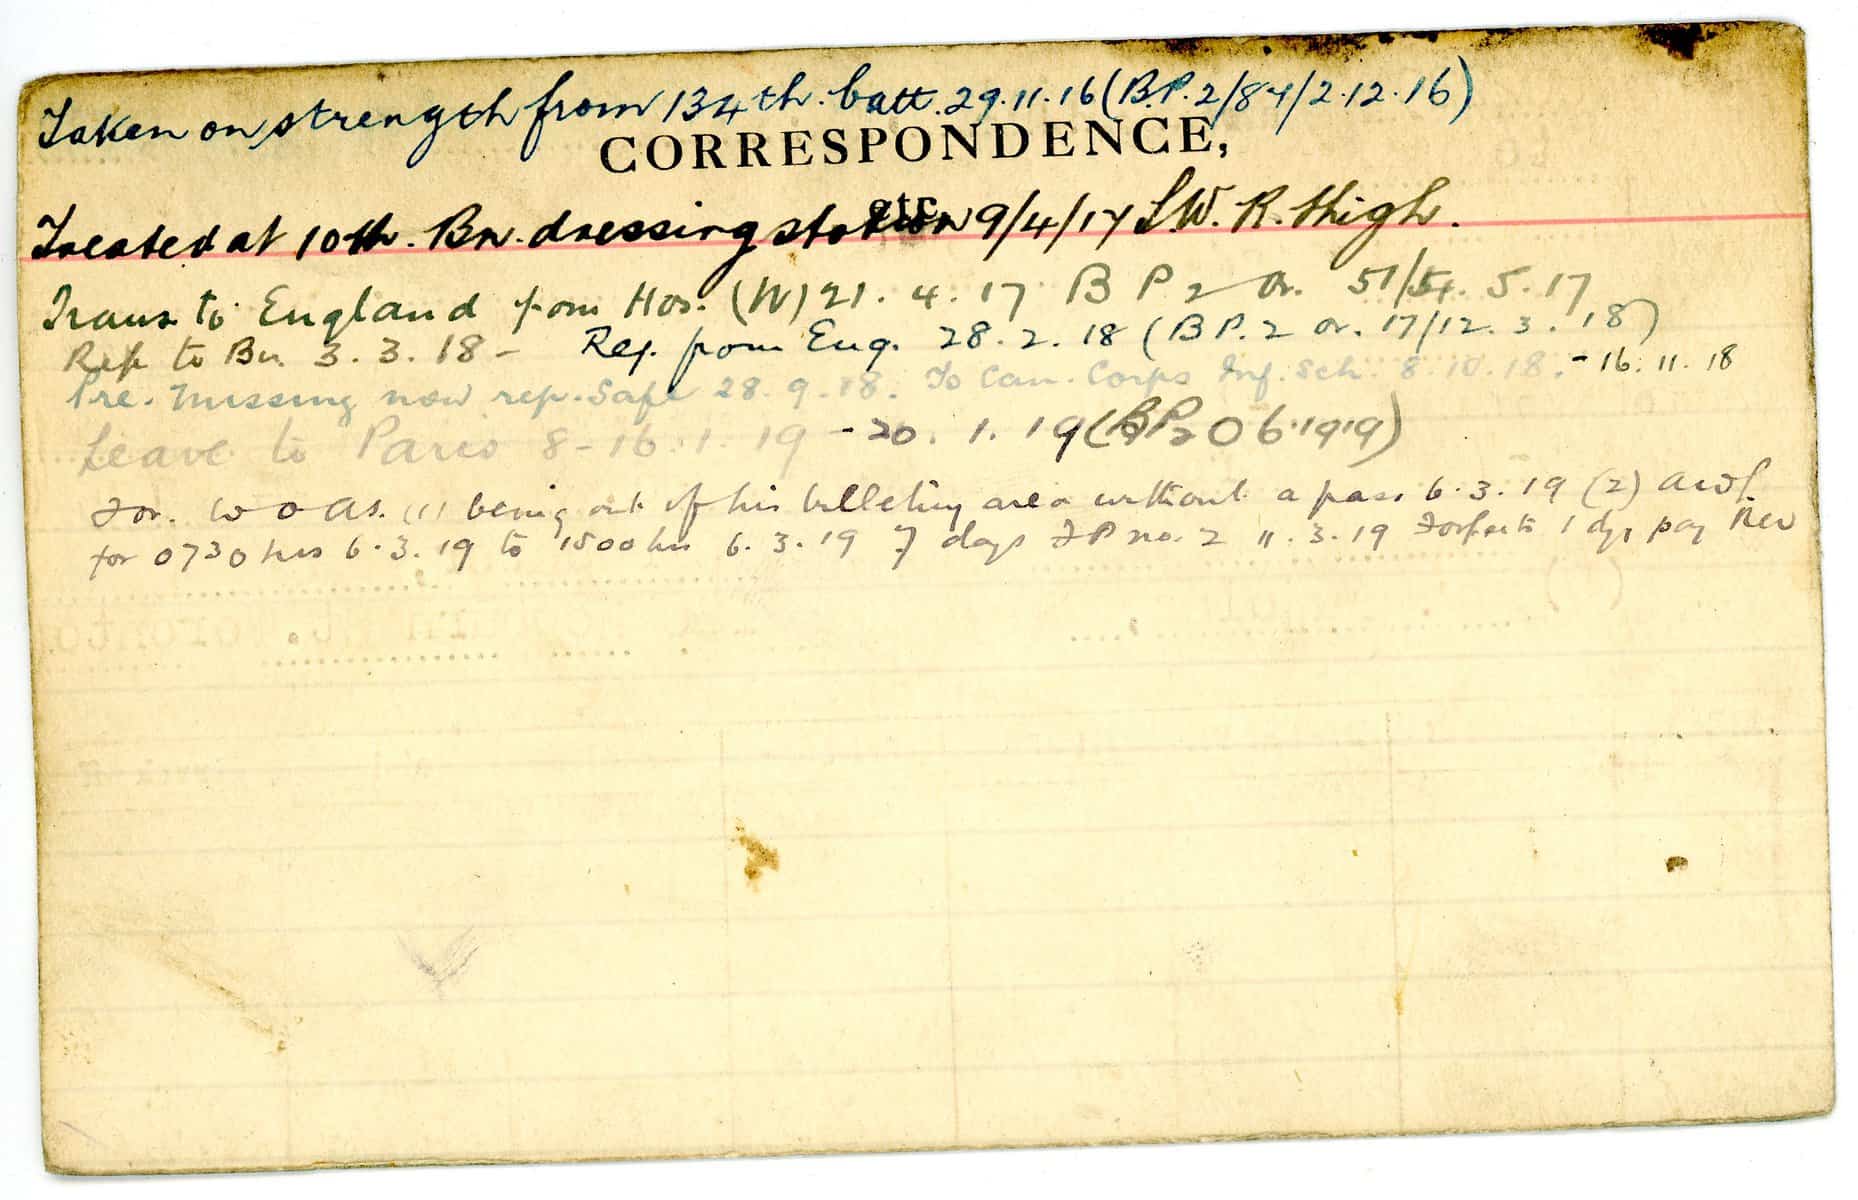 Taken on strength from 134th. batt. 29.11.16 (B.P. 2/84/2.12.16)
CORRESPONDENCE,
Treated at 10th. Bn. dressing station 9/4/17 S.W. R. Thigh.
Trans to England from Hos. (W) 21. 4. 17 B P 2 Or. 51/ 5. 17
Rep to Bn. 3. 3. 18 - Rej. from Eng. 28. 2. 18 (B P. 2 or. 17/12. 3. 18)
Pre. Missing now rep. Safe 28. 9. 18. To Can. Corps Inf. Sch. 8. 10. 18. - 16. 11. 18
Leave to Paris 8 - 16. 1. 19 - 20. 1. 19 (BP2 O 6. 1919)
For. W O AS. (1) being out of his billeting area without a pass 6. 3. 19 (2) awl.
for 0730 hrs 6. 3. 19 to 1500 hrs 6. 3. 19 7 days F P no. 2 11. 3. 19 Forfeits 1 dys pay